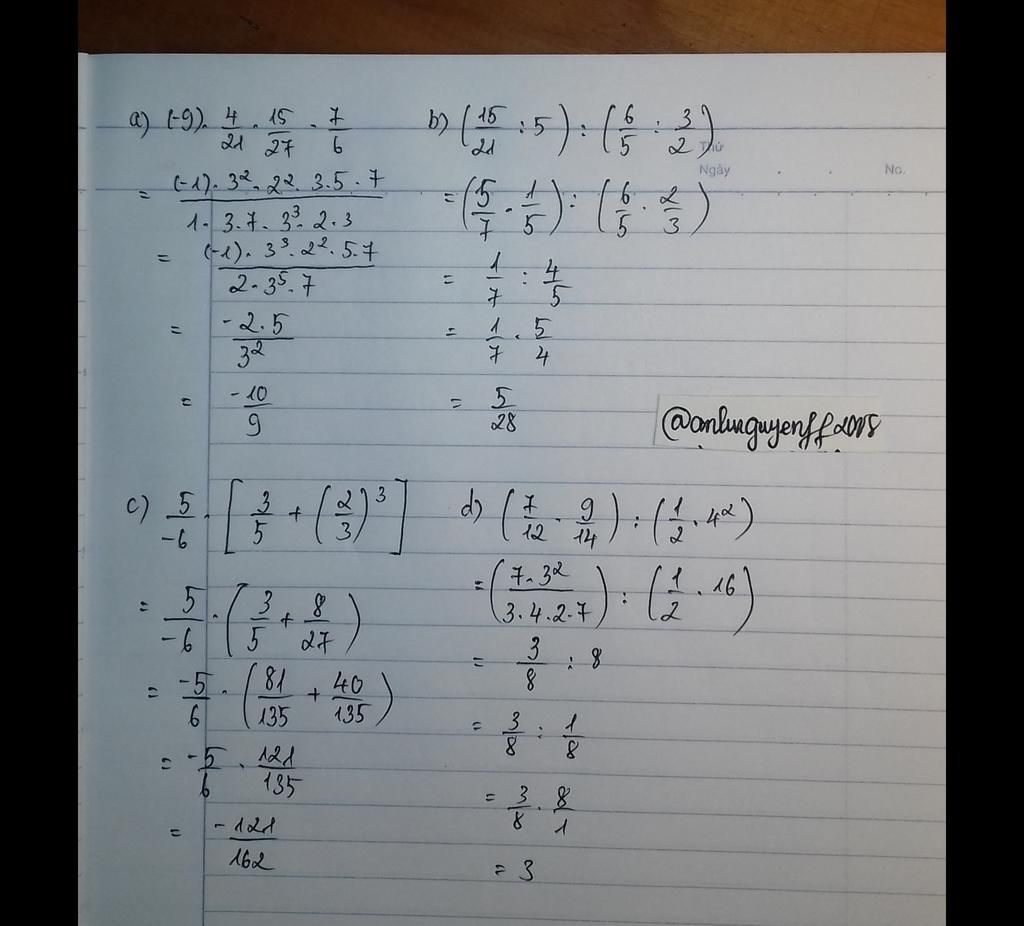 a) (-9) . 4/21 . 15/27 . 7/6
= (-1) . 3² . 2² . 3 . 5 . 7 / 1 . 3 . 7 . 3³ . 2 . 3
= (-1) . 3³ . 2² . 5 . 7 / 2 . 3⁵ . 7
= -2 . 5 / 3²
= -10/9
b) (15/21 : 5) : (6/5 : 3/2)
= (5/7 . 1/5) : (6/5 . 2/3)
= 1/7 : 4/5
= 1/7 . 5/4
= 5/28
Thứ
Ngày . . No.
c) 5/-6 . [3/5 + (2/3)³]
= 5/-6 . (3/5 + 8/27)
= -5/6 . (81/135 + 40/135)
= -5/6 . 121/135
= -121/162
d) (7/12 . 9/14) : (1/2 . 4²)
= (7 . 3² / 3 . 4 . 2 . 7) : (1/2 . 16)
= 3/8 : 8
= 3/8 : 1/8
= 3/8 . 8/1
= 3